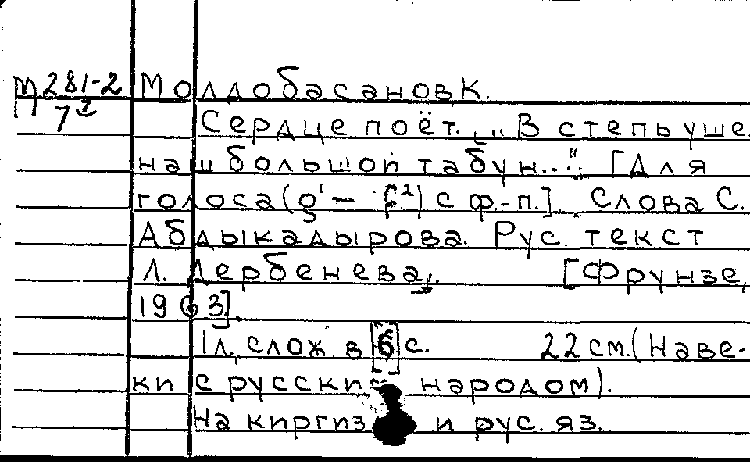 М 281-2 Молдобасанов К.
7
Сердце поёт. „.. В степь уше.
наш большой табун...". [Для
голоса (g¹ – f²) с ф.-п.]. Слова С.
Абдыкадырова. Рус. текст
Л. Дербенева. [Фрунзе,
1963].
1 л, слож в [6] с. 22 см. (Наве-
ки с русским народом).
На киргиз и рус. яз.